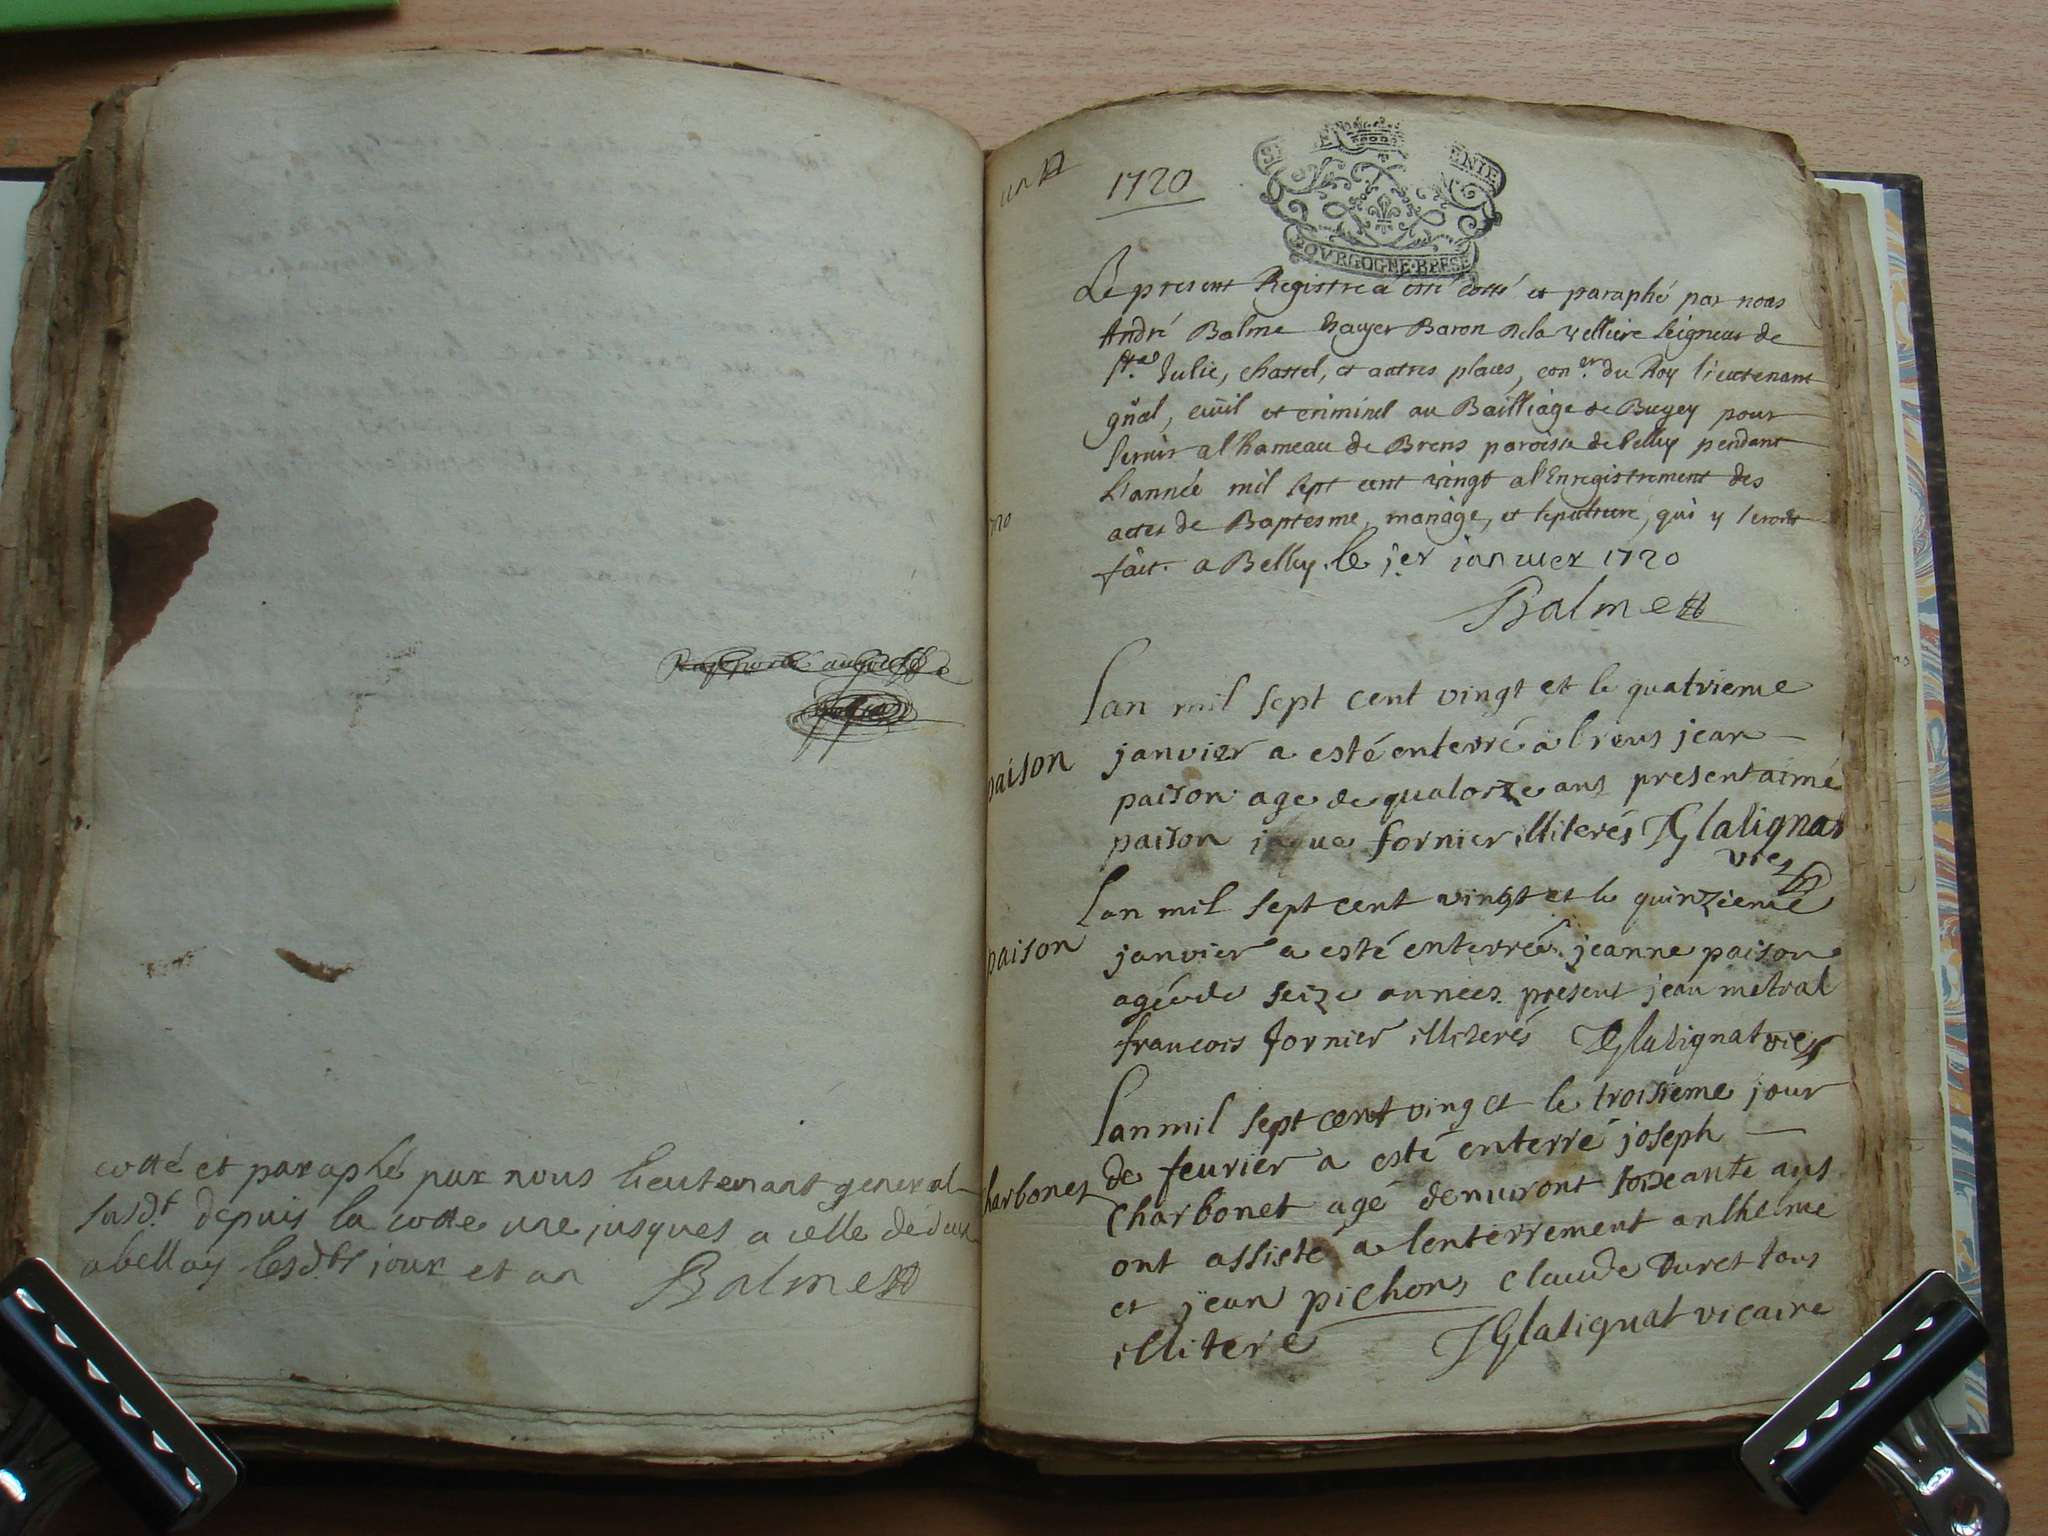 cotté et paraphé par nous lieutenant general
susd.t depuis la cotte une jusques a celle de deux
abellay lesd.ts jour et an Balme
un
1720
BOVRGOGNE·BRESSE
Le present Registre a esté cotté et paraphé par nous
André Balme Baron Dela velliere seigneur de
st.e Julie, chastel, et autres places, con.er du Roy lieutenant
gñal, civil et criminel au Bailliage de Bugey pour
servir al'hameau de Brens paroisse de belley pendant
L'année mil sept cent vingt al'Enregistrement des
actes de Baptesme, mariage, et sepulture, qui y seront
fait. a Belley. le j.er janvier 1720
Balme
lan mil sept cent vingt et le quatrieme
paison
janvier a esté enterré a brens jean
paison age de quatorze ans present aimé
paison fornier illiterés JGlatignat
vic
lan mil sept cent vingt et le quinzieme
paison
janvier a esté enterreé jeanne paison
agée de seize annees present jean metral
francois fornier illiterés JGlatignat vic
lan mil sept cent ving et le troisieme jour
de feurier a esté enterré joseph
harbonet
Charbonet agé denuiront soixante ans
ont assisté a lenterrement anthelme
et jean pichon, Claude Duret tous
illiteré JGlatignat vicaire